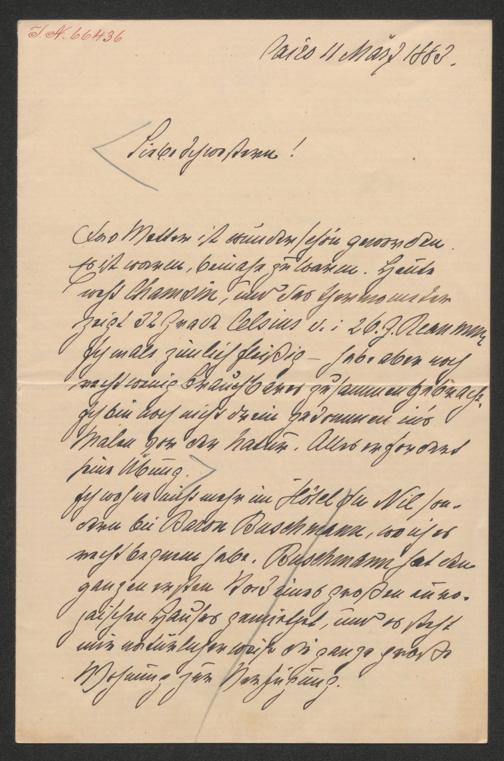 J. N. 66436
Cairo 11 März 1883.
Liebe Schwestern!
Das Wetter ist wunderschön geworden.
Es ist warm, beinahe zu warm. Heute
weht Chamsin, und das Thermometer
zeigt 32 Grade Celsius d. i 26. G. Reaumur
Ich male ziemlich fleißig – habe aber noch
recht wenig Brauchbares zusammengebracht.
Ich bin noch nicht drein gekommen in's
Malen vor der Natur. Alles erfordert
seine Übung.
Ich wohne nicht mehr im Hôtel du Nil son-
dern bei Baron Buschmann, wo ich es
recht bequem habe. Buschmann hat den
ganzen ersten Stock eines großen euro-
päischen Hauses gemiethet, und es steht
mir natürlicherweise die ganze große
Wohnung zur Verfügung.